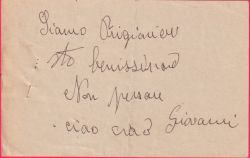 Siamo Prigionieri
sto benissimo
Non pensare
ciao ciao Giovanni